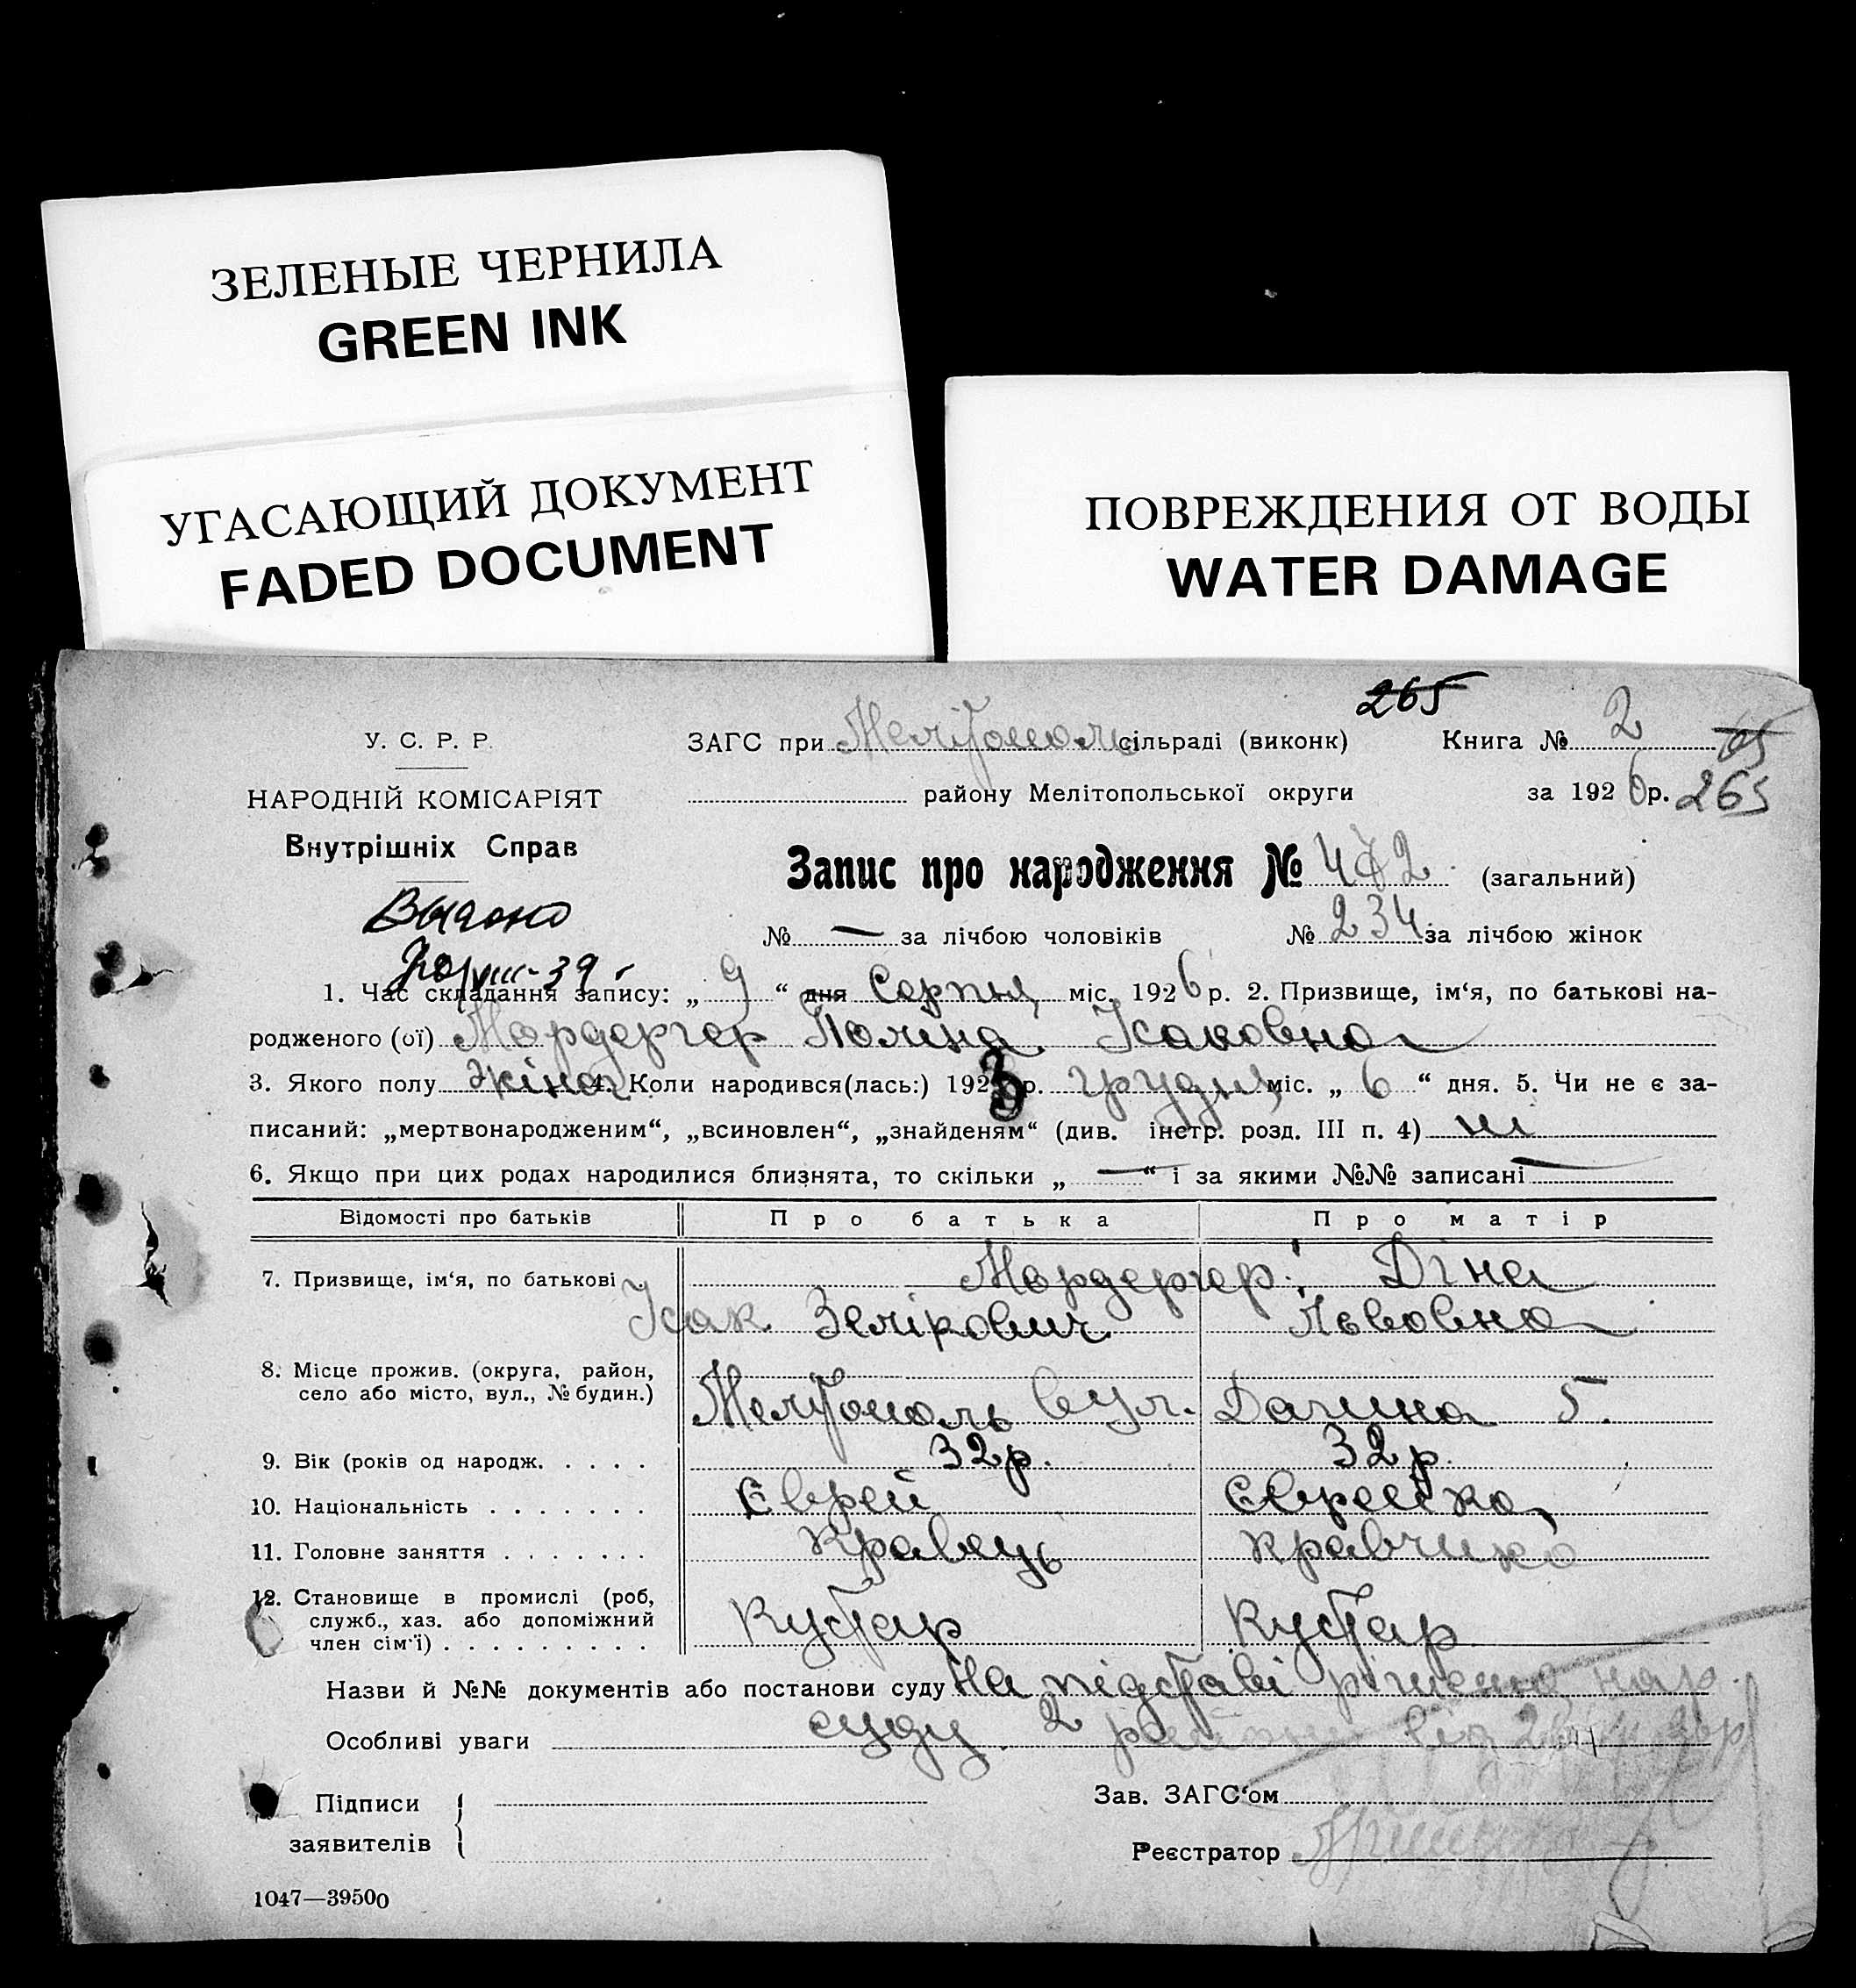 ЗЕЛЕНЫЕ ЧЕРНИЛА
GREEN INK
УГАСАЮЩИЙ ДОКУМЕНТ
FADED DOCUMENT
ПОВРЕЖДЕНИЯ ОТ ВОДЫ
WATER DAMAGE
265
У. С. Р. Р.
ЗАГС при Мелітополь сільраді (виконк) Книга № 2 65
НАРОДНІЙ КОМІСАРІЯТ
району Мелітопольської округи за 1926 р. 265
Внутрішніх Справ
Запис про народження № 472 (загальний)
Выдано
№ — за лічбою чоловіків № 234 за лічбою жінок
VIII-39
1. Час складання запису: „ 9 “ дня Серпня міс. 1926 р. 2. Призвище, ім‘я, по батькові на-
родженого (ої) Мордергер Поліна Ісаковна
3. Якого полу жіноч 4. Коли народився(лась:) 1923 р. грудня міс. „ 6 “ дня. 5. Чи не є за-
писаний: „мертвонародженим“, „всиновлен“, „знайденям“ (див. інстр. розд. III п. 4) ні
6. Якщо при цих родах народилися близнята, то скільки „ — “ і за якими №№ записані —
Відомості про батьків Про батька Про матір
7. Призвище, ім‘я, по батькові Мордергер: Діна
Ісак Зелікович Львовна
8. Місце прожив. (округа, район,
село або місто, вул., № будин.) Мелітополь вул. 5.
9. Вік (років од народж. . . . . 32 р. 32 р.
10. Національність . . . . . . . Єврей Єврейка
11. Головне заняття . . . . . . . Кравець Кравчиха
12. Становище в промислі (роб,
служб., хаз. або допоміжний
член сім‘ї) . . . . . . . . . Кустар Кустар
Назви й №№ документів або постанови суду На підставі рішення нар.
Особливі уваги суду 2 району від
Підписи
заявителів
Зав. ЗАГС‘ом
Реєстратор
1047—39500